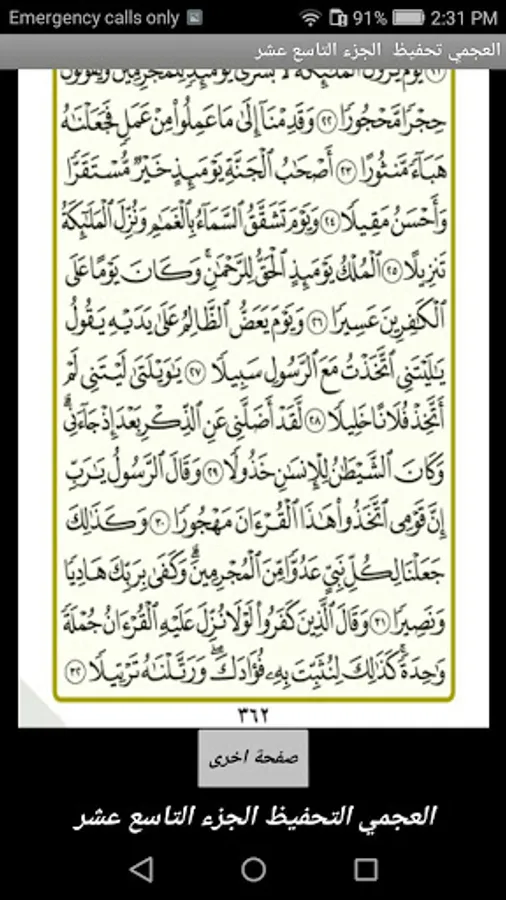 Emergency calls only
91%
2:31 PM
العجمي تحفيظ الجزء التاسع عشر
يَوْمَ يَرَوْنَ الْمَلَٰٓئِكَةَ لَا بُشْرَىٰ يَوْمَئِذٍ لِّلْمُجْرِمِينَ وَيَقُولُونَ
حِجْرًا مَّحْجُورًا ٢٢ وَقَدِمْنَآ إِلَىٰ مَا عَمِلُوا۟ مِنْ عَمَلٍ فَجَعَلْنَٰهُ
هَبَآءً مَّنثُورًا ٢٣ أَصْحَٰبُ الْجَنَّةِ يَوْمَئِذٍ خَيْرٌ مُّسْتَقَرًّا
وَأَحْسَنُ مَقِيلًا ٢٤ وَيَوْمَ تَشَقَّقُ السَّمَآءُ بِالْغَمَٰمِ وَنُزِّلَ الْمَلَٰٓئِكَةُ
تَنزِيلًا ٢٥ الْمُلْكُ يَوْمَئِذٍ الْحَقُّ لِلرَّحْمَٰنِ ۚ وَكَانَ يَوْمًا عَلَى
الْكَٰفِرِينَ عَسِيرًا ٢٦ وَيَوْمَ يَعَضُّ الظَّالِمُ عَلَىٰ يَدَيْهِ يَقُولُ
يَٰلَيْتَنِى اتَّخَذْتُ مَعَ الرَّسُولِ سَبِيلًا ٢٧ يَٰوَيْلَتَىٰ لَيْتَنِى لَمْ
أَتَّخِذْ فُلَانًا خَلِيلًا ٢٨ لَّقَدْ أَضَلَّنِى عَنِ الذِّكْرِ بَعْدَ إِذْ جَآءَنِى ۗ
وَكَانَ الشَّيْطَٰنُ لِلْإِنسَٰنِ خَذُولًا ٢٩ وَقَالَ الرَّسُولُ يَٰرَبِّ
إِنَّ قَوْمِى اتَّخَذُوا۟ هَٰذَا الْقُرْءَانَ مَهْجُورًا ٣٠ وَكَذَٰلِكَ
جَعَلْنَا لِكُلِّ نَبِىٍّ عَدُوًّا مِّنَ الْمُجْرِمِينَ ۗ وَكَفَىٰ بِرَبِّكَ هَادِيًا
وَنَصِيرًا ٣١ وَقَالَ الَّذِينَ كَفَرُوا۟ لَوْلَا نُزِّلَ عَلَيْهِ الْقُرْءَانُ جُمْلَةً
وَٰحِدَةً ۚ كَذَٰلِكَ لِنُثَبِّتَ بِهِۦ فُؤَادَكَ ۖ وَرَتَّلْنَٰهُ تَرْتِيلًا ٣٢
٣٦٢
صفحة اخرى
العجمي التحفيظ الجزء التاسع عشر